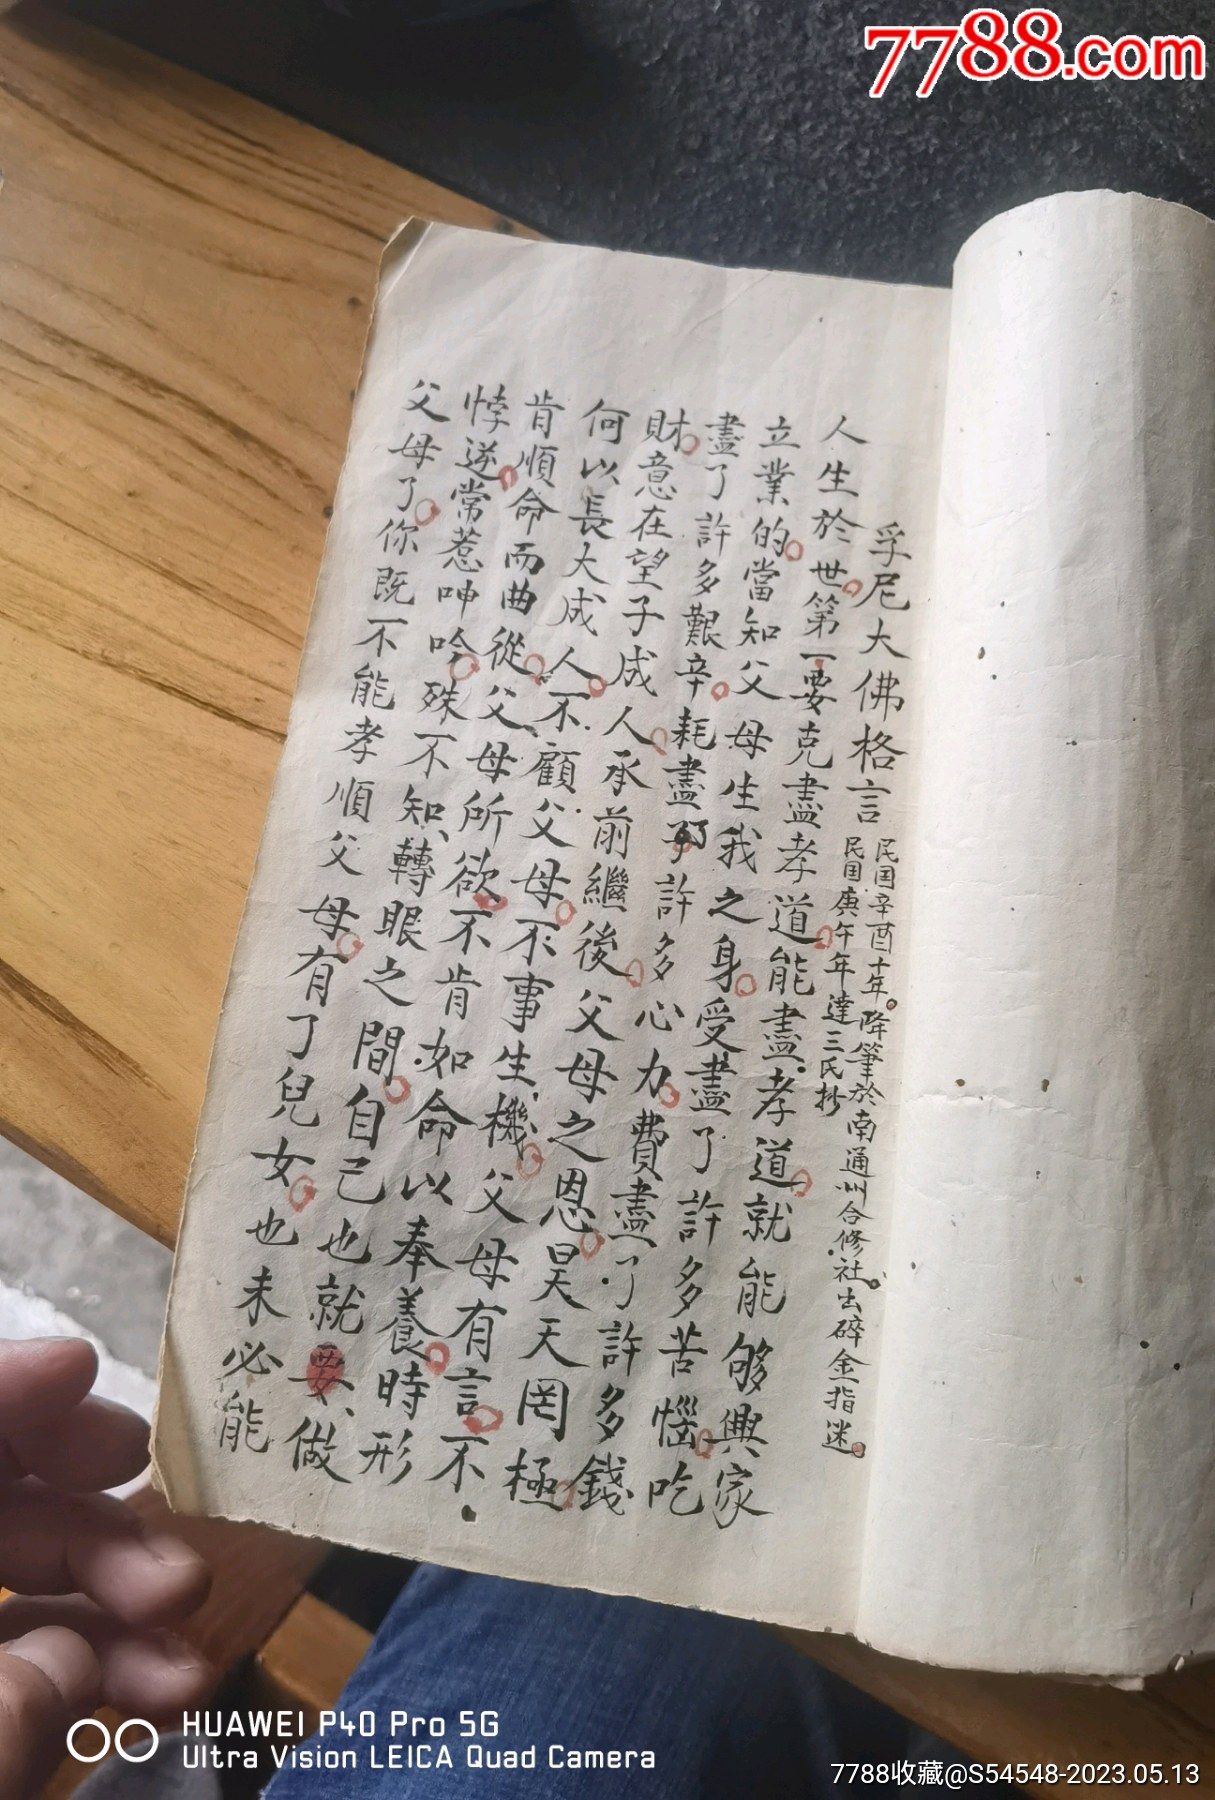 7788.com
孚尼大佛格言
民国辛酉十年。降筆於南通州合修社。出碎金指迷。
民国庚午年達三氏抄
人生於世。第一要克盡孝道。能盡孝道。就能够興家
立業的。當知父母生我之身。受盡了許多苦惱。吃
盡了許多艱辛。耗盡了許多心力。費盡了許多錢
財。意在望子成人。承前繼後。父母之恩。昊天罔極。
何以長大成人。不顧父母。不事生機。父母有言。不
肯順命而曲從。父母所欲。不肯如命以奉養。時形
悖逆。常惹呻吟。殊不知、轉眼之間。自己也就要、做
父母了。你既不能孝順父母。有了兒女。也未必能
HUAWEI P40 Pro 5G
Ultra Vision LEICA Quad Camera
7788收藏@S54548-2023.05.13